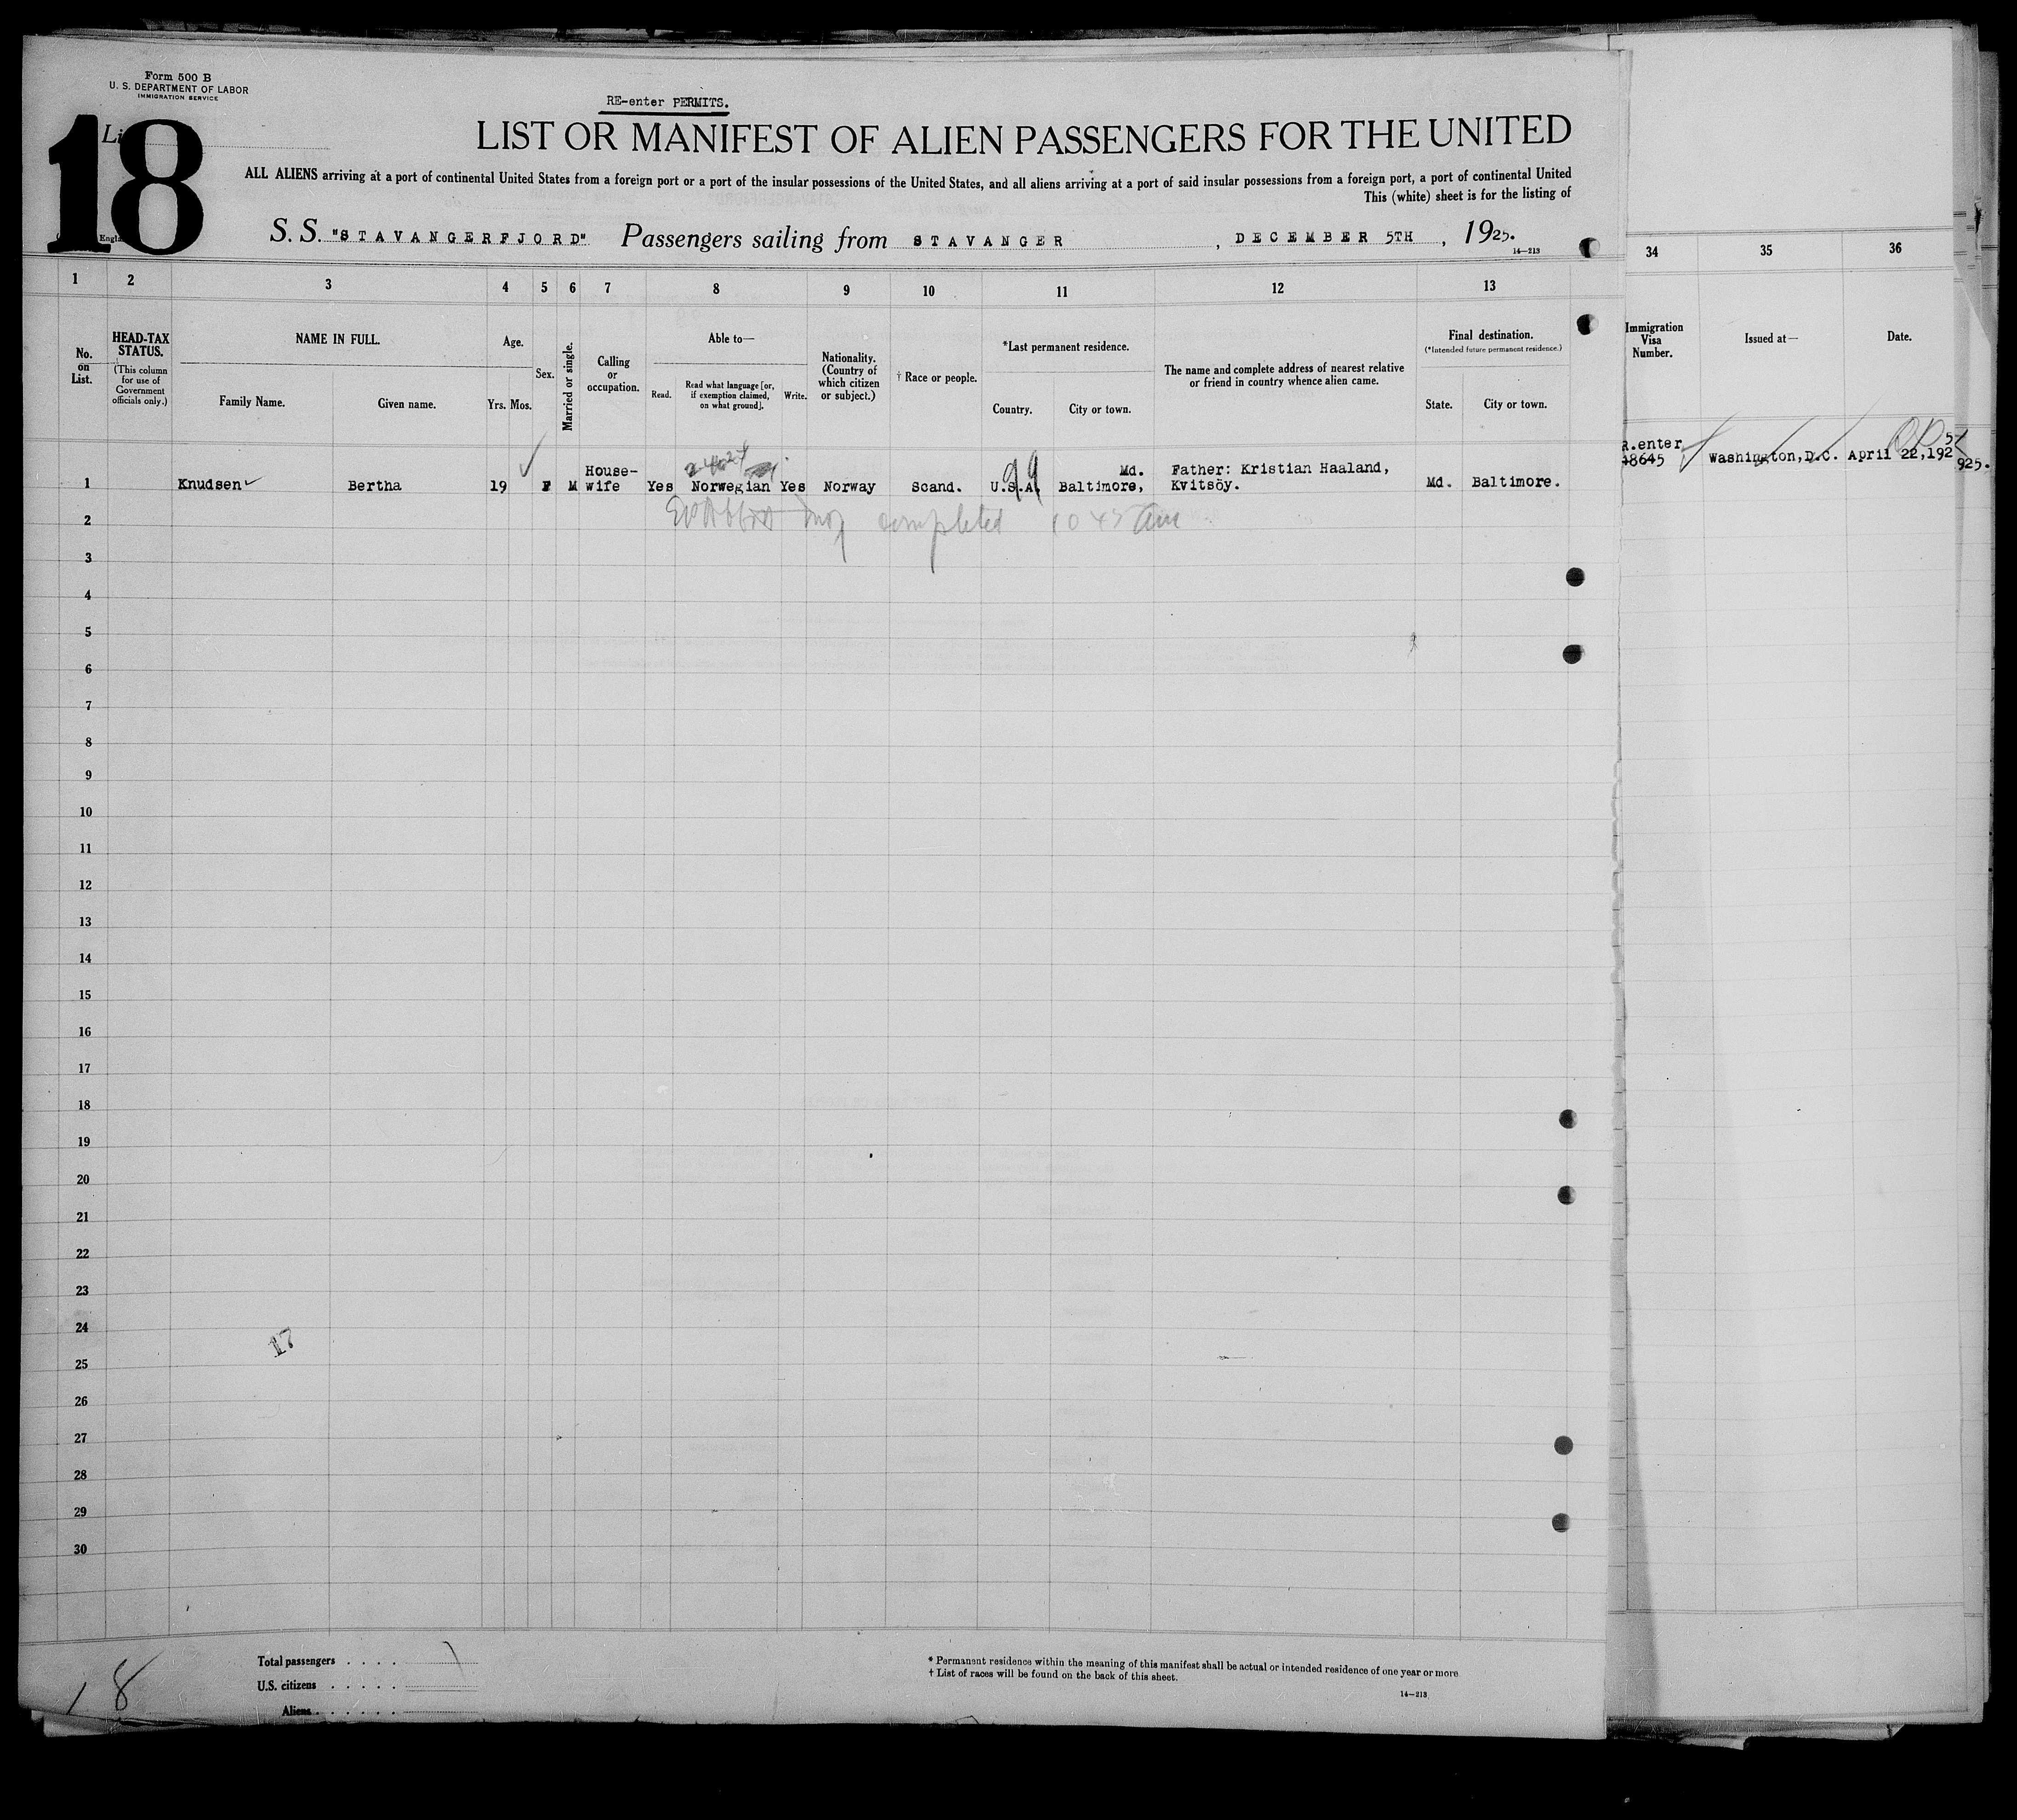 Form 500 B
U. S. DEPARTMENT OF LABOR
IMMIGRATION SERVICE
18
RE-enter PERMITS.
LIST OR MANIFEST OF ALIEN PASSENGERS FOR THE UNITED
ALL ALIENS arriving at a port of continental United States from a foreign port or a port of the insular possessions of the United States, and all aliens arriving at a port of said insular possessions from a foreign port, a port of continental United
This (white) sheet is for the listing of
S. S. "STAVANGERFJORD" Passengers sailing from STAVANGER, DECEMBER 5TH, 1925.
14—213
1 2 3 4 5 6 7 8 9 10 11 12 13 34 35 36
No. on List.
HEAD-TAX STATUS.
(This column for use of Government officials only.)
NAME IN FULL.
Family Name. Given name.
Age.
Yrs. Mos.
Sex.
Married or single.
Calling or occupation.
Able to—
Read.
Read what language [or, if exemption claimed, on what ground].
Write.
Nationality. (Country of which citizen or subject.)
† Race or people.
*Last permanent residence.
Country. City or town.
The name and complete address of nearest relative or friend in country whence alien came.
Final destination.
(*Intended future permanent residence.)
State. City or town.
Immigration Visa Number.
Issued at—
Date.
1 Knudsen Bertha 19 F M House-wife Yes Norwegian Yes Norway Scand. U.S.A. Baltimore, Md. Father: Kristian Haaland, Kvitsöy. Md. Baltimore. R.enter 48645 Washington, D.C. April 22, 192
99
925.
completed 10 45 am
2
3
4
5
6
7
8
9
10
11
12
13
14
15
16
17
18
19
20
21
22
23
24
17
25
26
27
28
29
30
18
Total passengers
U.S. citizens
Aliens
* Permanent residence within the meaning of this manifest shall be actual or intended residence of one year or more
† List of races will be found on the back of this sheet.
14—213